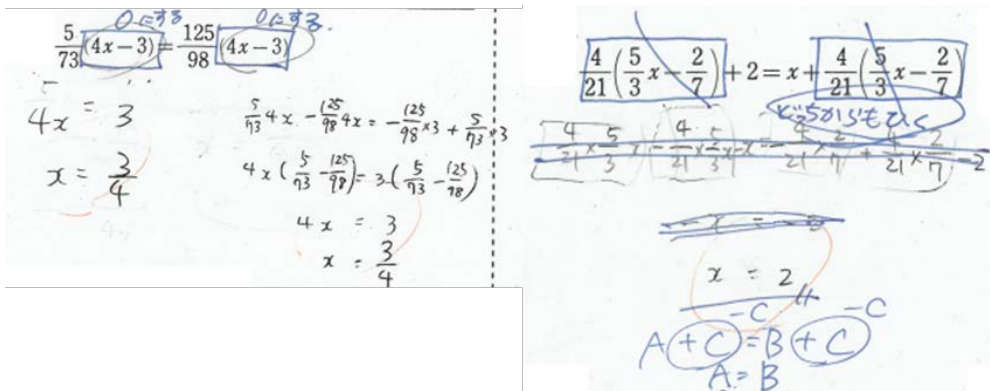 0にする 0にする.
5/73 (4x−3) = 125/98 (4x−3)
4x = 3
x = 3/4
5/73 4x − 125/98 4x = −125/98 ×3 + 5/73 ×3
4x(5/73 − 125/98) = 3(5/73 − 125/98)
4x = 3
x = 3/4
4/21 (5/3 x − 2/7) + 2 = x + 4/21 (5/3 x − 2/7)
どちらからもひく
4/21 × 5/3 x − 4/21 × 5/3 x − x = − 4/21 × 2/7 + 4/21 × 2/7 − 2
x = 2
−C −C
A + C = B + C
A = B